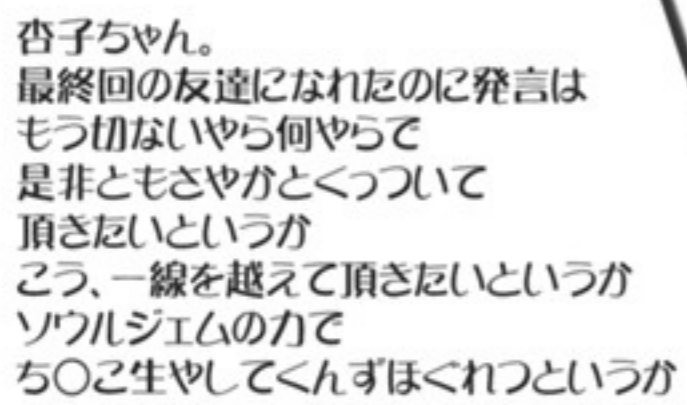 杏子ちゃん。
最終回の友達になれたのに発言は
もう切ないやら何やらで
是非ともさやかとくっついて
頂きたいというか
こう、一線を越えて頂きたいというか
ソウルジェムの力で
ち〇こ生やしてくんずほぐれつというか